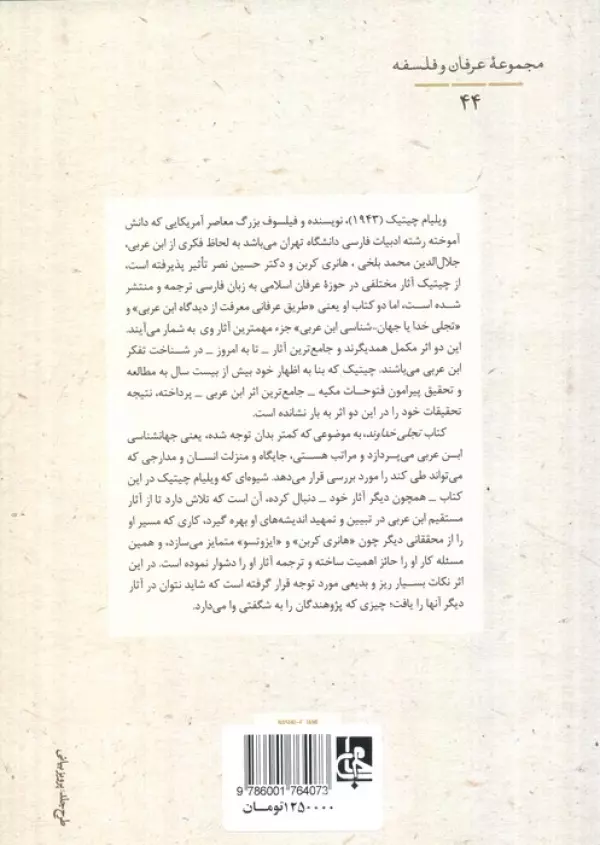 مجموعهٔ عرفان و فلسفه
۴۴
ویلیام چیتیک (۱۹۴۳)، نویسنده و فیلسوف بزرگ معاصر آمریکایی که دانش
آموخته رشته ادبیات فارسی دانشگاه تهران می‌باشد به لحاظ فکری از ابن عربی،
جلال‌الدین محمد بلخی ، هانری کربن و دکتر حسین نصر تأثیر پذیرفته است،
از چیتیک آثار مختلفی در حوزهٔ عرفان اسلامی به زبان فارسی ترجمه و منتشر
شده است، اما دو کتاب او یعنی «طریق عرفانی معرفت از دیدگاه ابن عربی» و
«تجلی خدا یا جهان-شناسی ابن عربی» جزء مهمترین آثار وی به شمار می‌آیند.
این دو اثر مکمل همدیگرند و جامع‌ترین آثار _ تا به امروز _ در شناخت تفکر
ابن عربی می‌باشند. چیتیک که بنا به اظهار خود بیش از بیست سال به مطالعه
و تحقیق پیرامون فتوحات مکیه _ جامع‌ترین اثر ابن عربی _ پرداخته، نتیجه
تحقیقات خود را در این دو اثر به بار نشانده است.
کتاب تجلی خداوند، به موضوعی که کمتر بدان توجه شده، یعنی جهانشناسی
ابن عربی می‌پردازد و مراتب هستی، جایگاه و منزلت انسان و مدارجی که
می‌تواند طی کند را مورد بررسی قرار می‌دهد. شیوه‌ای که ویلیام چیتیک در این
کتاب _ همچون دیگر آثار خود _ دنبال کرده، آن است که تلاش دارد تا از آثار
مستقیم ابن عربی در تبیین و تمهید اندیشه‌های او بهره گیرد، کاری که مسیر او
را از محققانی دیگر چون «هانری کربن» و «ایزوتسو» متمایز می‌سازد، و همین
مسئله کار او را حائز اهمیت ساخته و ترجمه آثار او را دشوار نموده است. در این
اثر نکات بسیار ریز و بدیعی مورد توجه قرار گرفته است که شاید نتوان در آثار
دیگر آنها را یافت؛ چیزی که پژوهندگان را به شگفتی وا می‌دارد.
9 786001 764073
۱۲۵۰۰۰۰تومـان
طرح جلد: پرویز بیانی